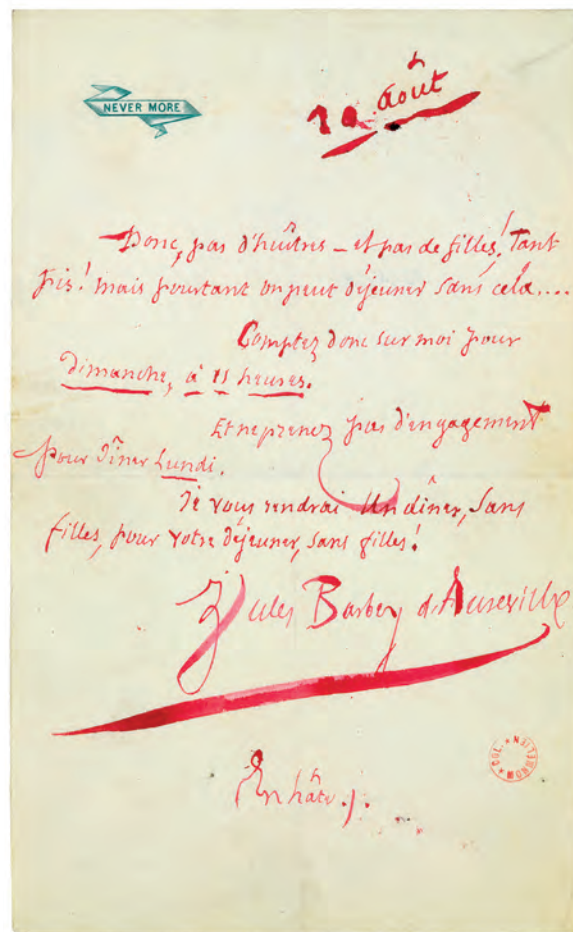 NEVER MORE
20 Août
Donc, pas d'huîtres – et pas de filles! Tant
pis! mais pourtant on peut déjeuner sans cela....
Comptez donc sur moi pour
dimanche, à 11 heures.
Et ne prenez pas d'engagement
pour dîner Lundi.
Je vous rendrai Un dîner, sans
filles, pour votre déjeuner, sans filles!
Jules Barbey d'Aurevilly
En hâte.
COL. * MONMELIEN *